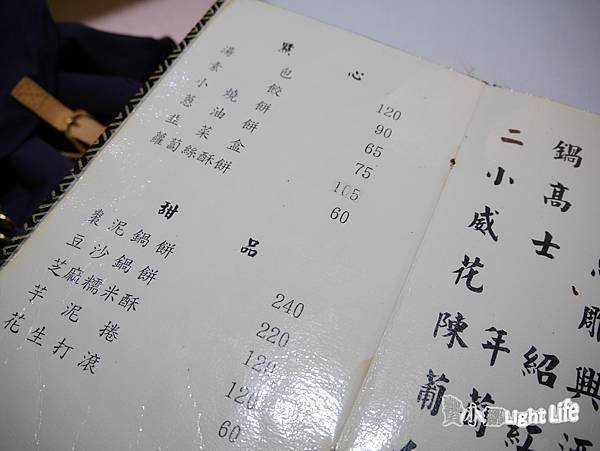 點心
湯包 120
素餃 90
小燒餅 65
蔥油餅 75
韭菜盒 105
蘿蔔絲酥餅 60
甜品
棗泥鍋餅 240
豆沙鍋餅 220
芝麻糯米酥 120
芋泥捲 120
花生打滾 60
二鍋
小高
威士
花雕
陳年紹興
葡萄紅酒
Light Life